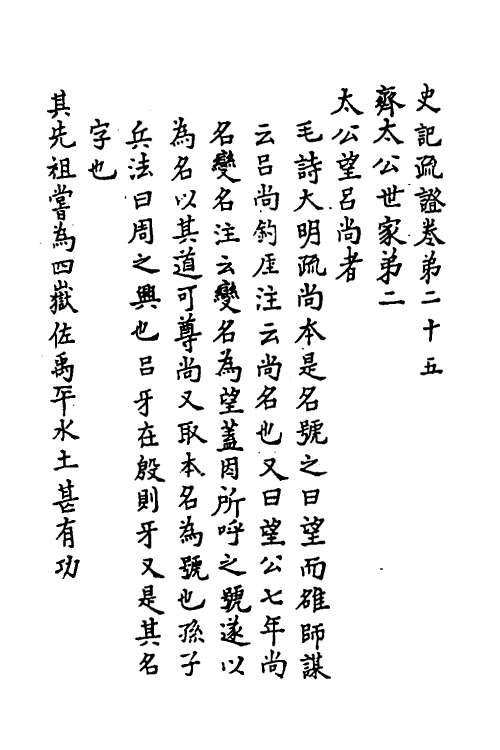 史記疏證卷第二十五
齊太公世家第二
太公望呂尚者
毛詩大明疏尚本是名號之曰望而雒師謀
云呂尚釣厓注云尚名也又曰望公七年尚
名變名注云變名為望蓋因所呼之號遂以
為名以其道可尊尚又取本名為號也孫子
兵法曰周之興也呂牙在殷則牙又是其名
字也
其先祖嘗為四嶽佐禹平水土甚有功